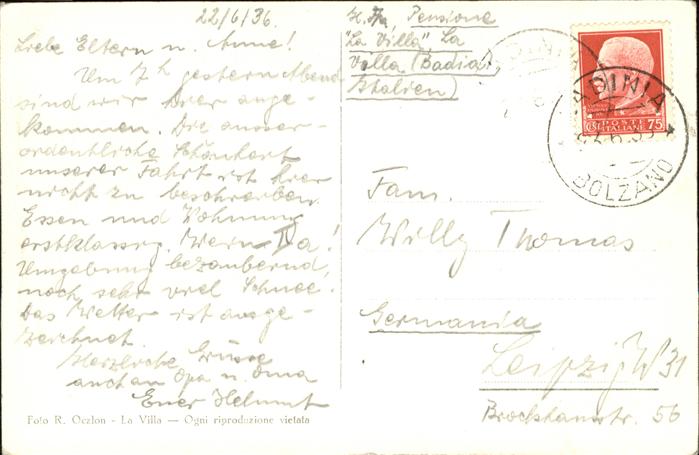 22/6/36.
Liebe Eltern u. Anne!
Um 7h gestern Abend
sind wir hier ange-
kommen. Die ausser-
ordentliche Schönheit
unserer Fahrt ist hier
nicht zu beschreiben.
Essen und Wohnung
erstklassig. Wein Ia!
Umgebung bezaubernd,
noch sehr viel Schnee.
Das Wetter ist ausge-
zeichnet.
Herzliche Grüsse
auch an Opa u. Oma
Euer Helmut
Foto R. Oczlon - La Villa — Ogni riproduzione vietata
Pensione
"La Villa", La
Villa (Badia,
Italien)
POSTE
ITALIANE
75
LADINIA
BOLZANO
Fam.
Willy Thomas
Germania
Leipzig W 31
Brockhausstr. 56